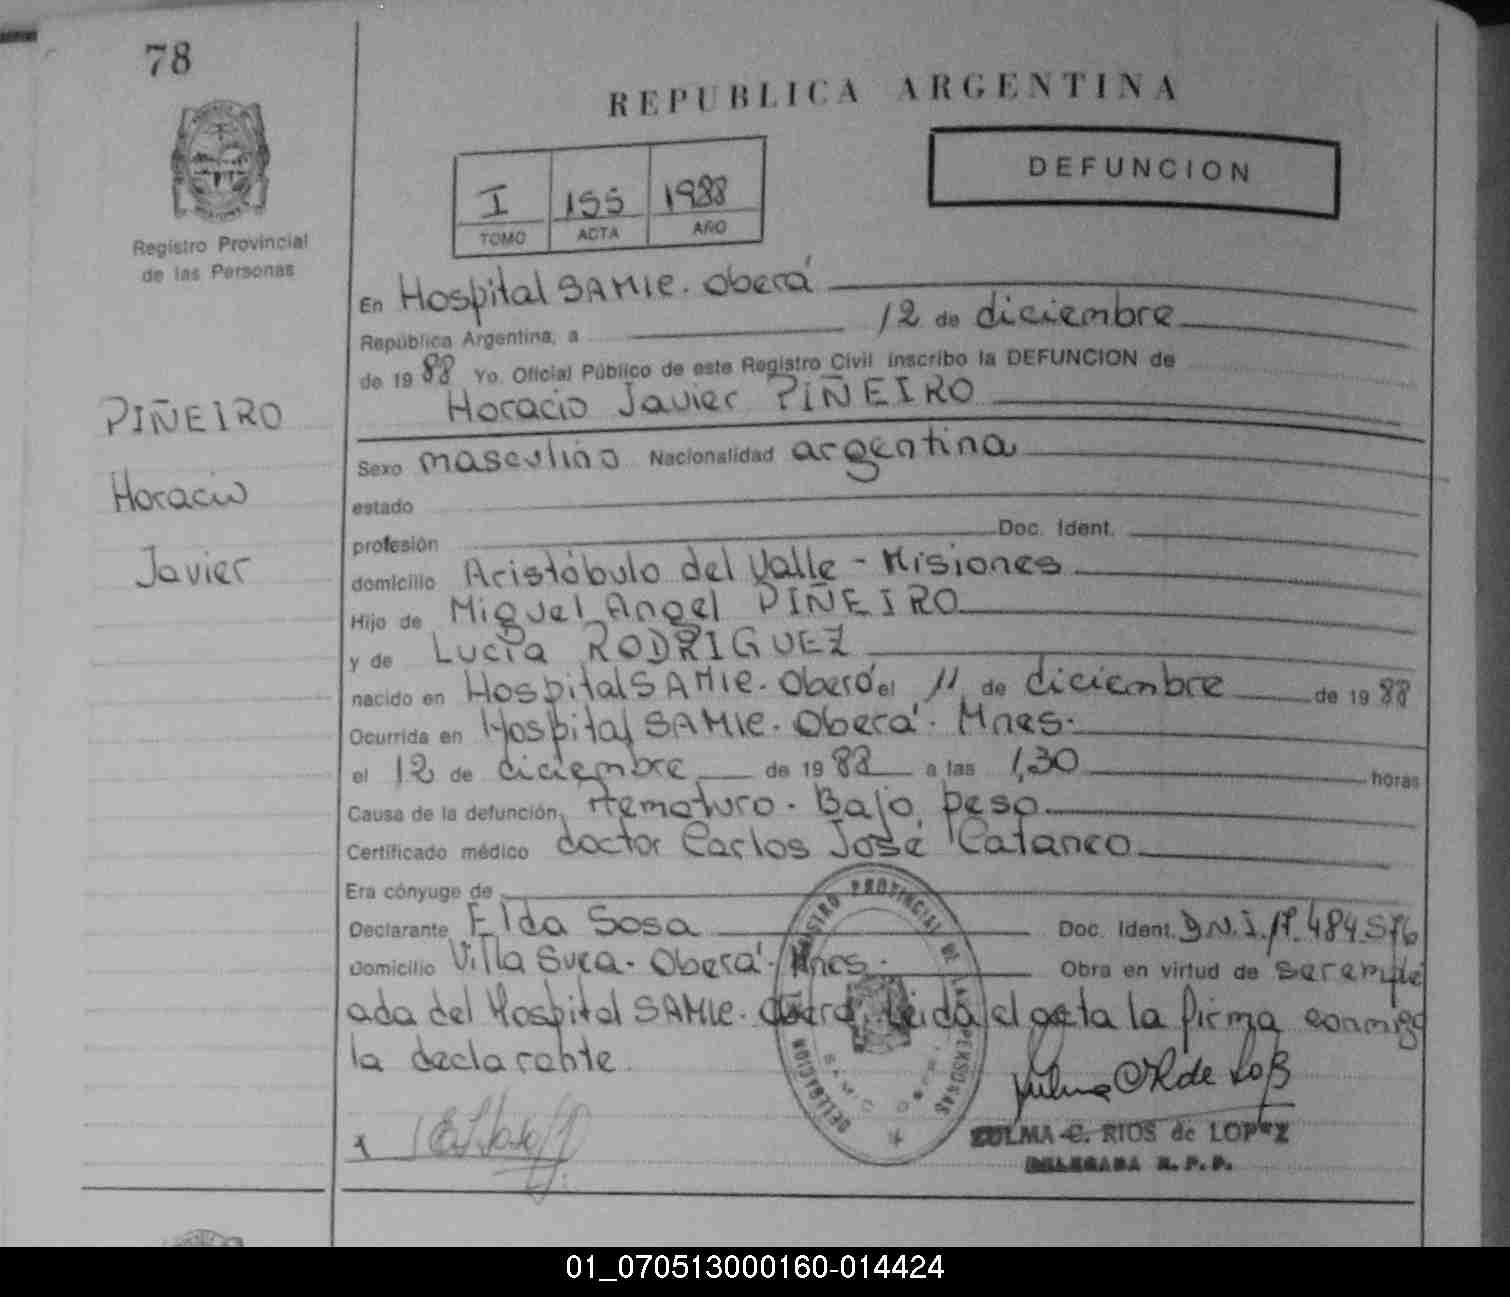 78
REPUBLICA ARGENTINA
DEFUNCION
I 155 1988
TOMO ACTA AÑO
Registro Provincial
de las Personas
PIÑEIRO
Horacio
Javier
En Hospital SAMIC. Oberá
República Argentina, a 12 de diciembre
de 1988 Yo. Oficial Público de este Registro Civil inscribo la DEFUNCION de
Horacio Javier PIÑEIRO
Sexo masculino Nacionalidad argentina
estado
profesión Doc. Ident.
domicilio Aristóbulo del Valle - Misiones
Hijo de Miguel Angel PIÑEIRO
y de Lucía RODRIGUEZ
nacido en Hospital SAMIC. Oberá el 11 de diciembre de 1988
Ocurrida en Hospital SAMIC. Oberá. Mnes.
el 12 de diciembre de 1988 a las 1,30 horas
Causa de la defunción Bajo peso
Certificado médico doctor Carlos José
Era cónyuge de
Declarante Elda Sosa Doc. Ident. D.N.I. 17.484.576
Domicilio Villa Svea. Oberá. Mnes. Obra en virtud de ser emple
ada del Hospital SAMIC. Oberá. Leida el acta la firma conmigo
la declarante.
REGISTRO PROVINCIAL DE LAS PERSONAS
DELEGACION
ZULMA C. RIOS de LOPEZ
DELEGADA R. P. P.
01_070513000160-014424